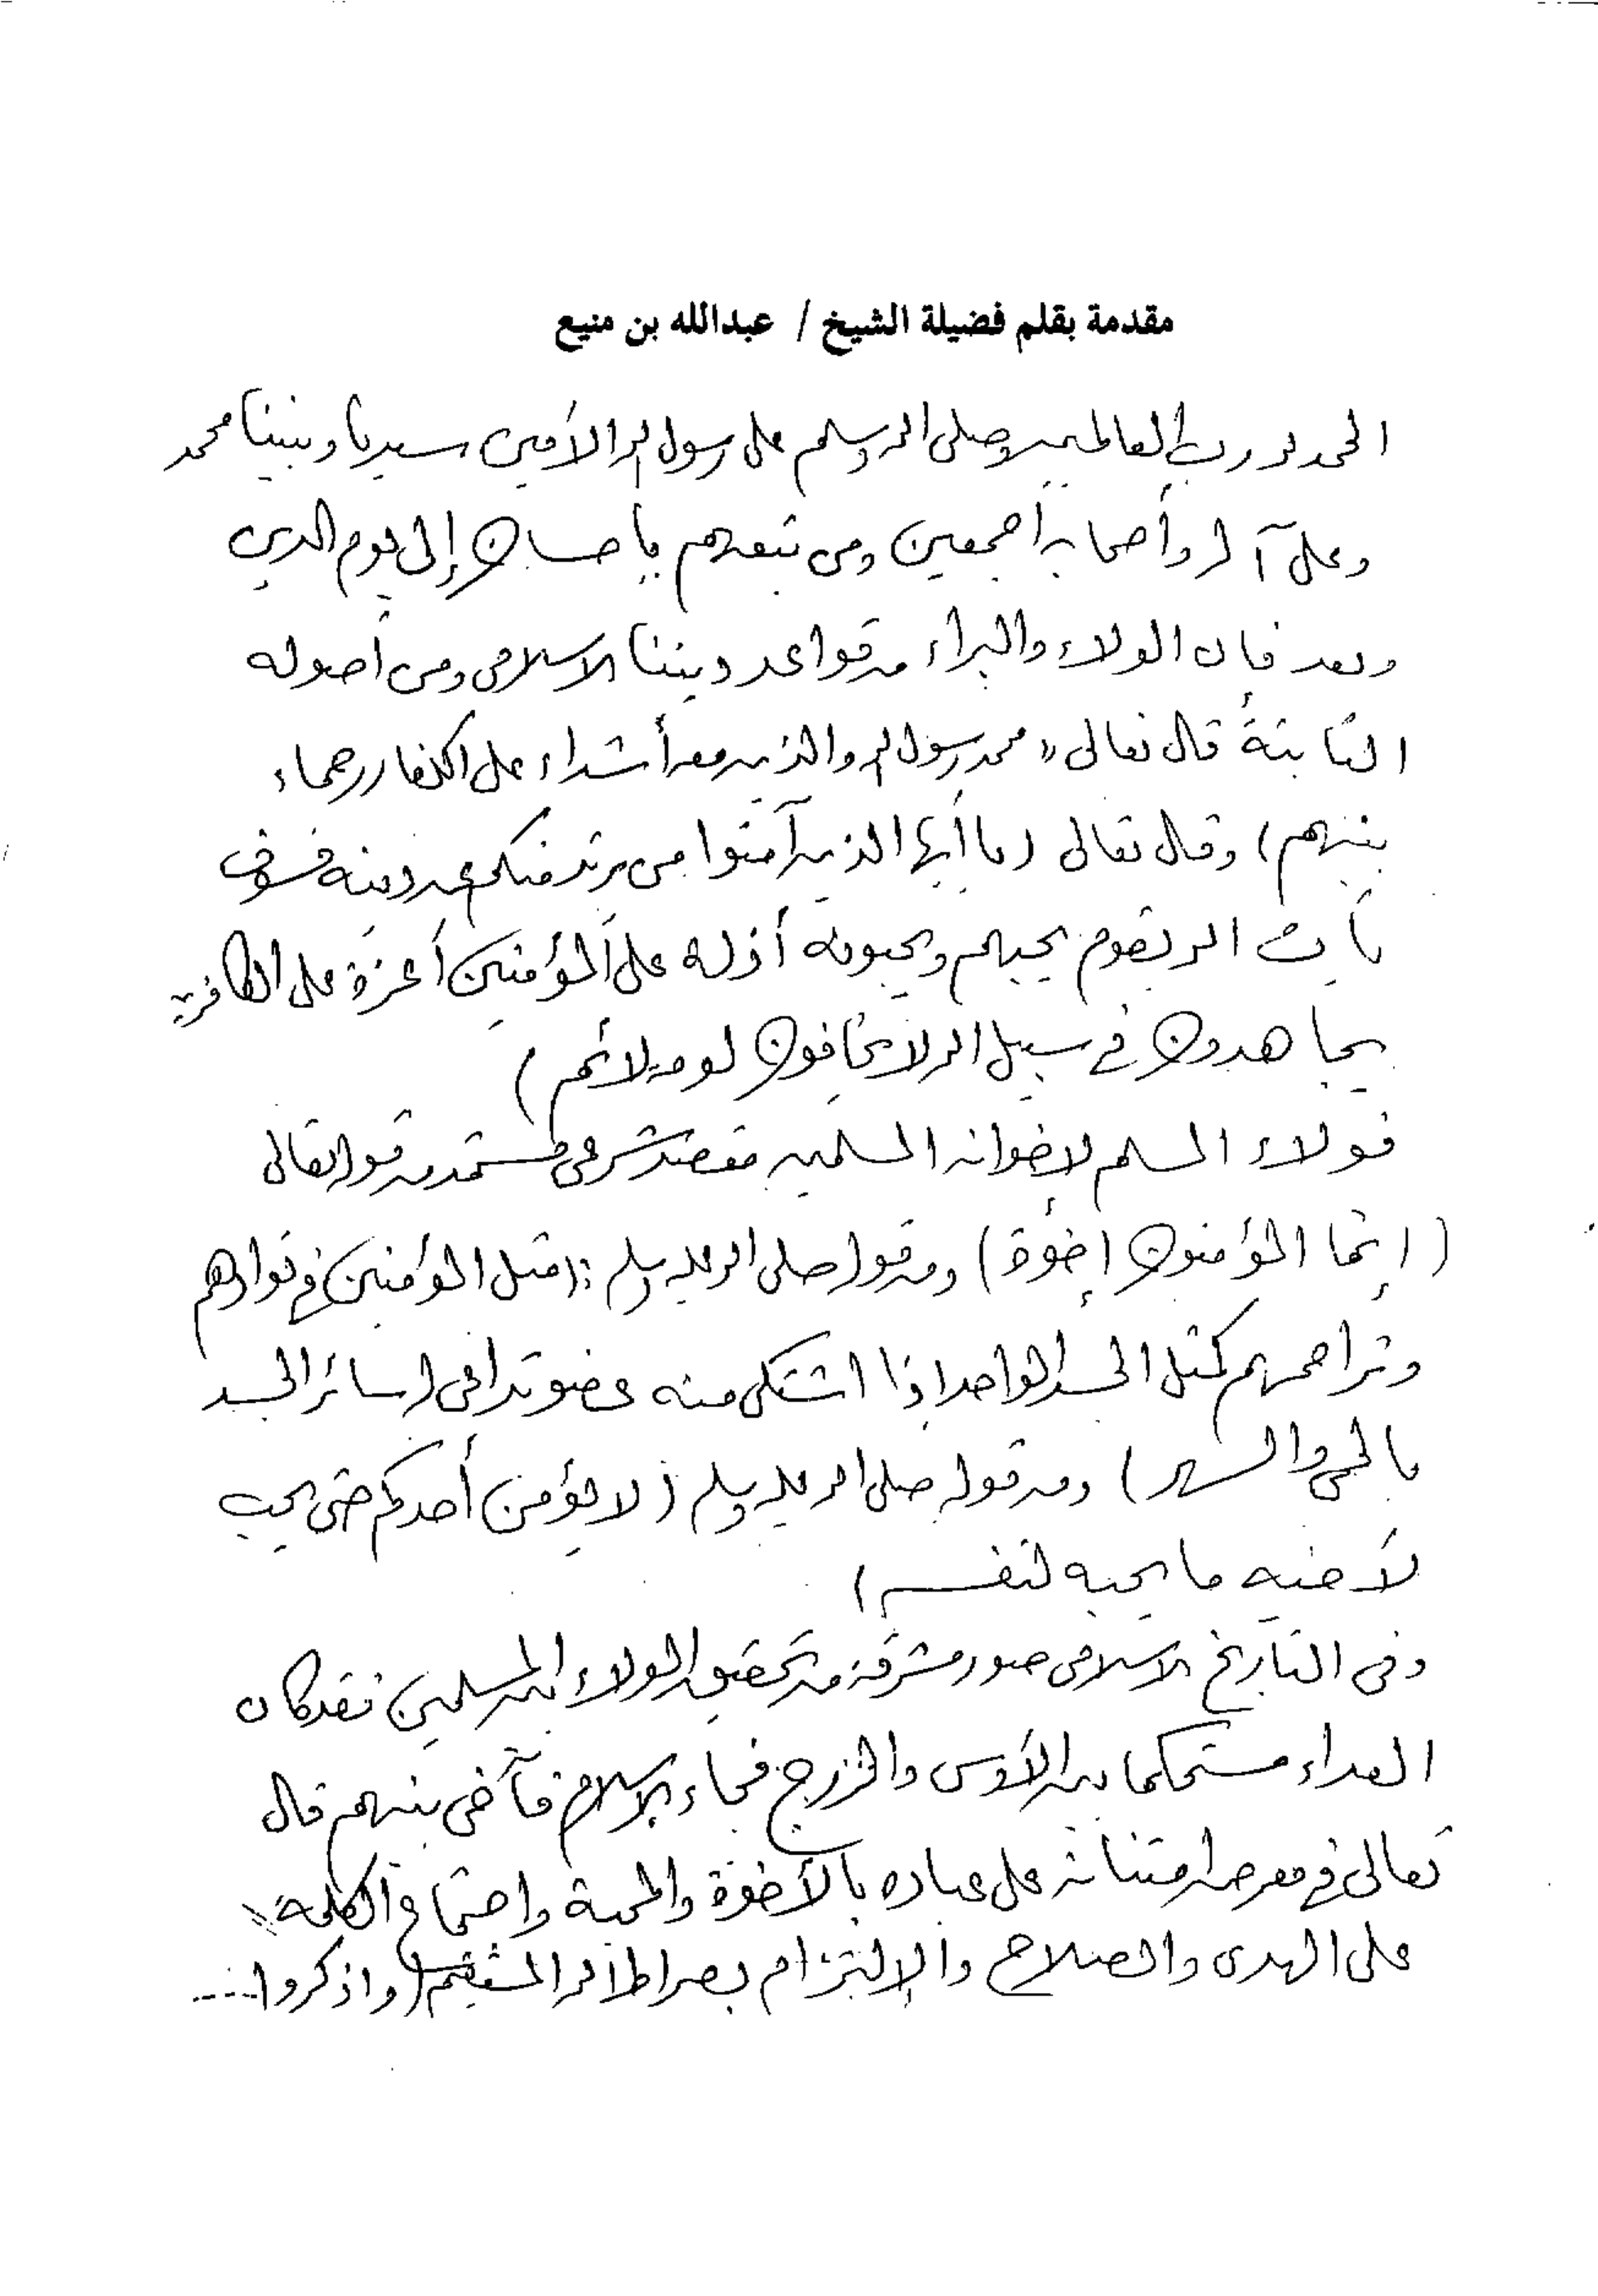 مقدمة بقلم فضيلة الشيخ / عبدالله بن منيع
الحمد لله رب العالمين وصلى الله وسلم على رسول الله الأمين سيدنا ونبينا محمد
وعلى آله وأصحابه أجمعين ومن تبعهم بإحسان إلى يوم الدين
وبعد فإن الولاء والبراء من قواعد ديننا الاسلامي ومن أصوله
الثابتة قال تعالى (( محمد رسول الله والذين معه أشداء على الكفار رحماء
بينهم) وقال تعالى (يا أيها الذين آمنوا من يرتد منكم عن دينه فسوف
يأتي الله بقوم يحبهم ويحبونه أذلة على المؤمنين أعزة على الكافرين
يجاهدون في سبيل الله لا يخافون لومة لائم)
فولاء المسلم لإخوانه المسلمين مقتضى شرعي مستمد من قوله تعالى
(إنما المؤمنون إخوة) ومن قوله صلى الله عليه وسلم :(مثل المؤمنين في توادهم
وتراحمهم كمثل الجسد الواحد إذا اشتكى منه عضو تداعى له سائر الجسد
بالحمى والسهر) ومن قوله صلى الله عليه وسلم (لا يؤمن أحدكم حتى يحب
لأخيه ما يحبه لنفسه)
وفي التاريخ الاسلامي صور مشرقة من تحقيق الولاء بين المسلمين فقد كان
العداء مستحكما بين الأوس والخزرج فجاء الإسلام فآخى بينهم قال
تعالى في معرض امتنانه على عباده بالأخوة والمحبة واجتماع الكلمة
على الهدى والصلاح والإلتزام بصراط الله المستقيم (واذكروا .....